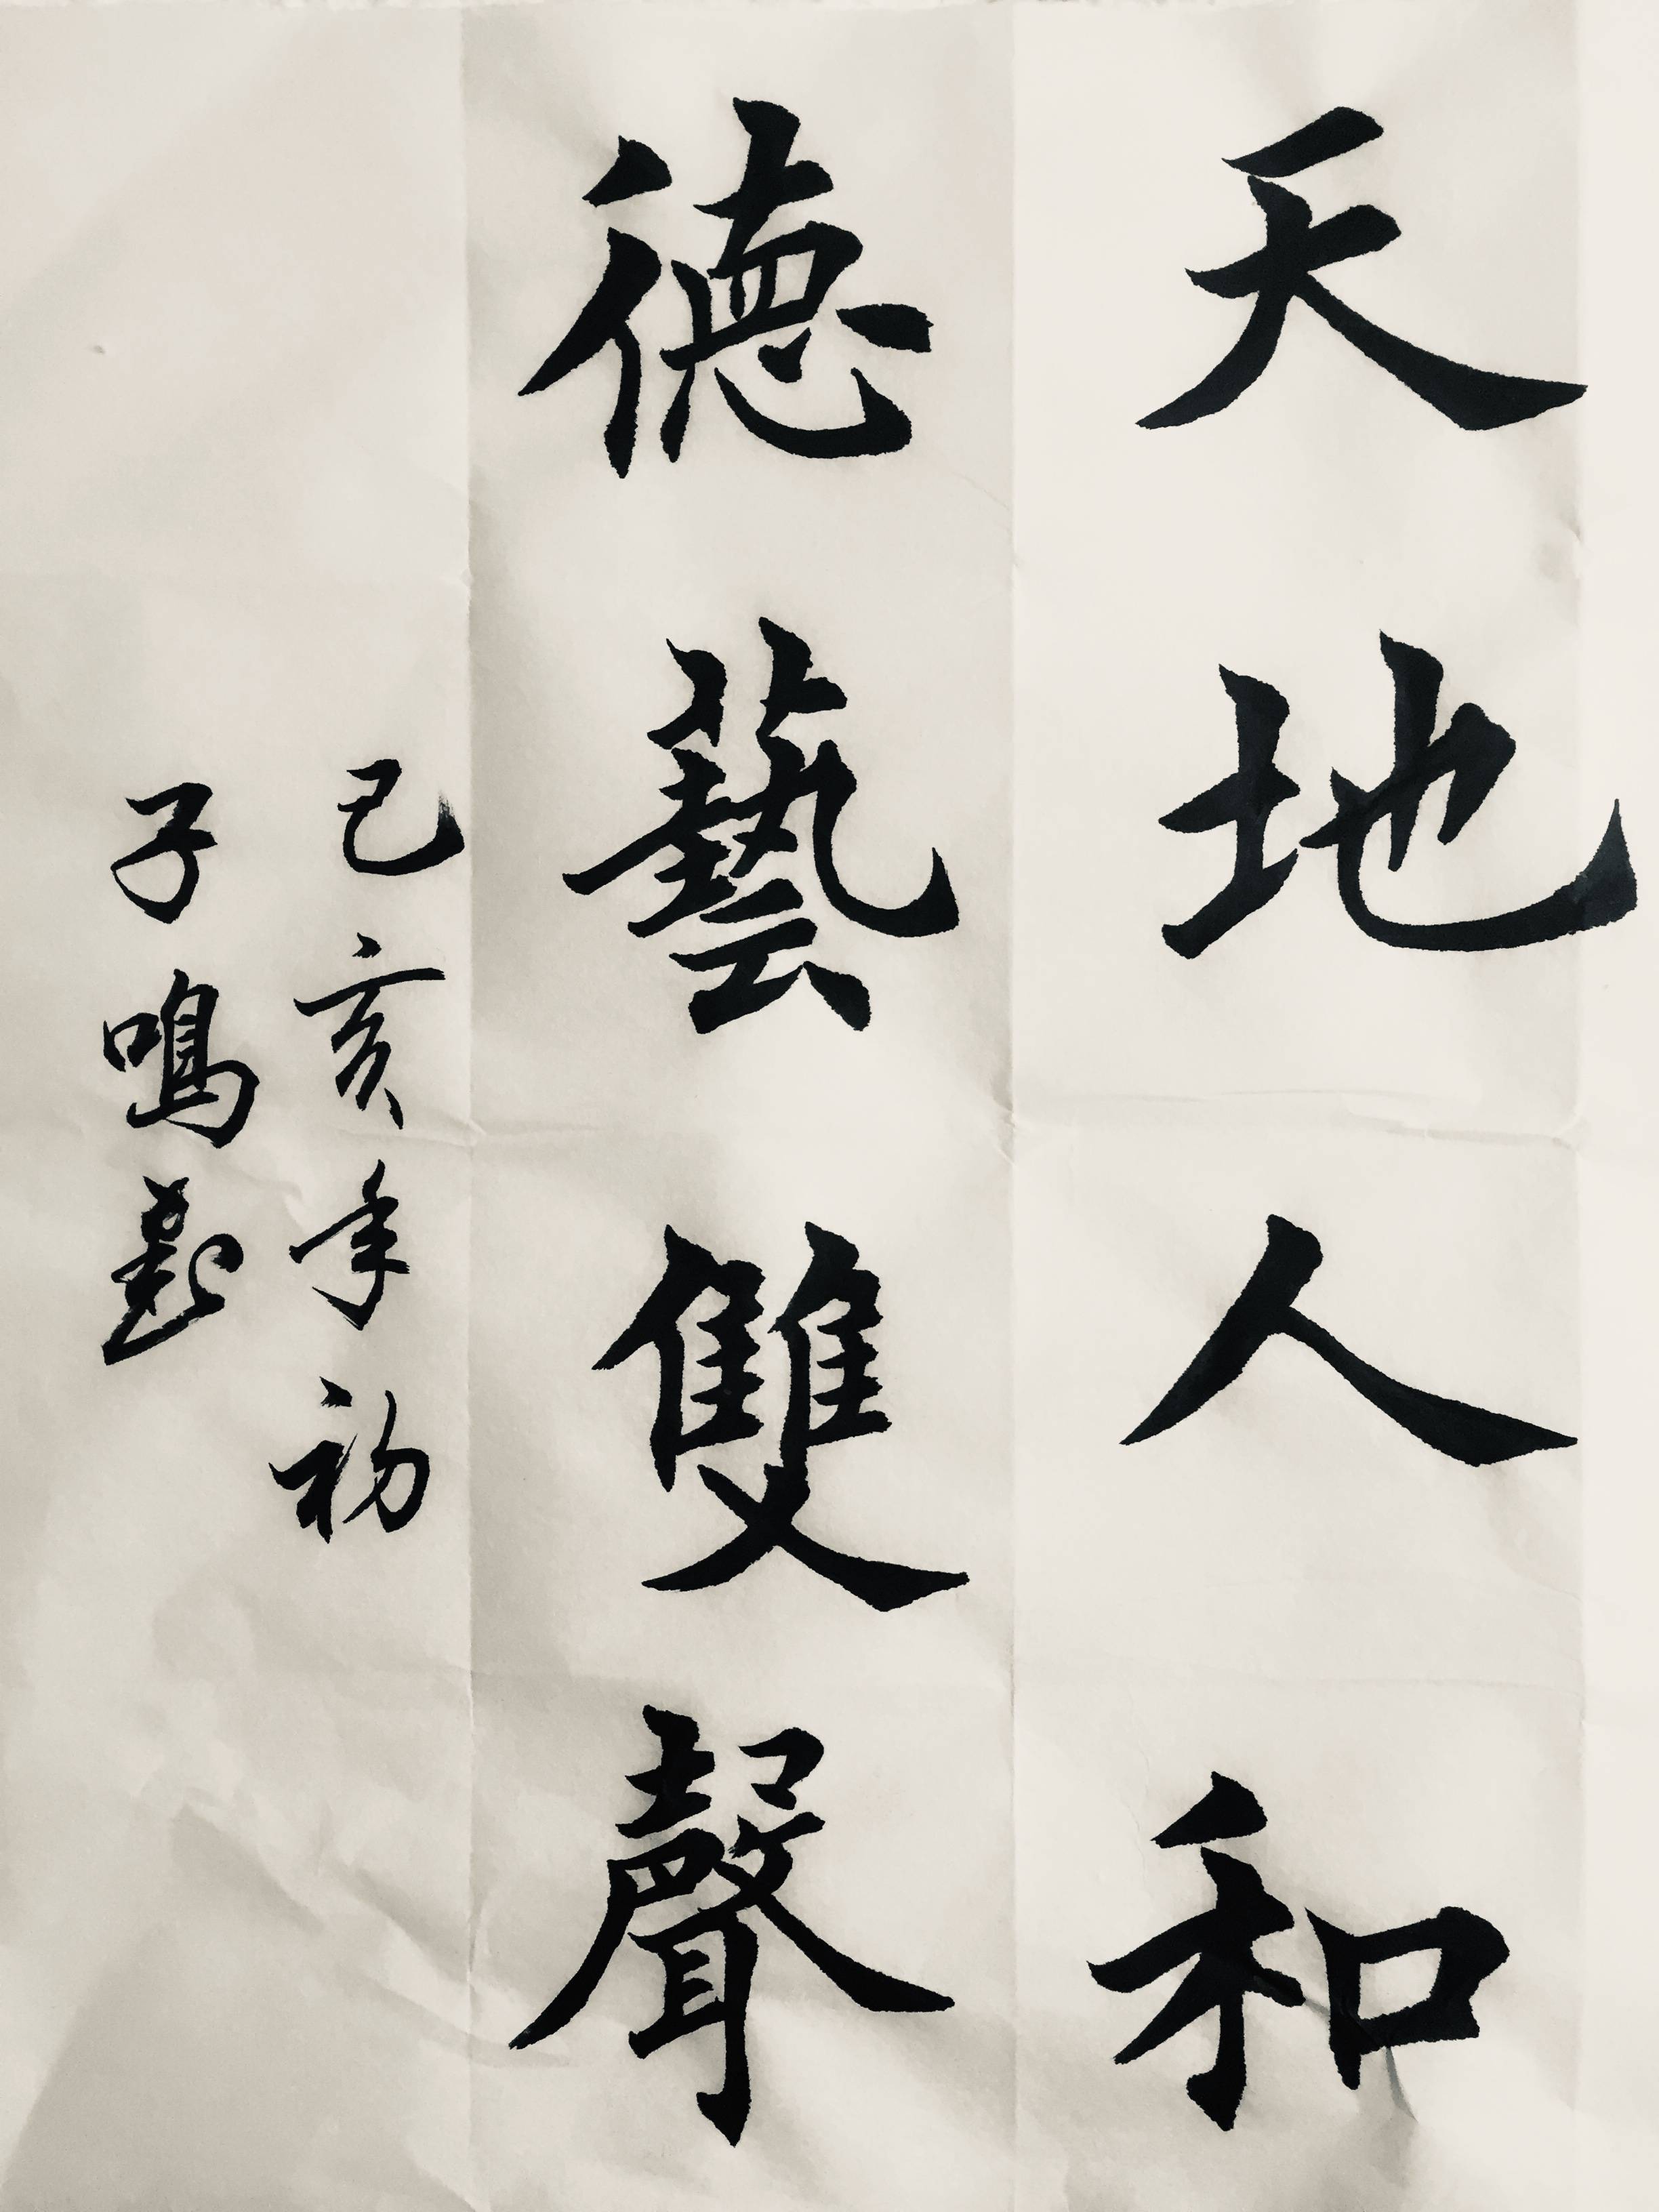 天地人和
德藝雙聲
己亥年初
子鳴